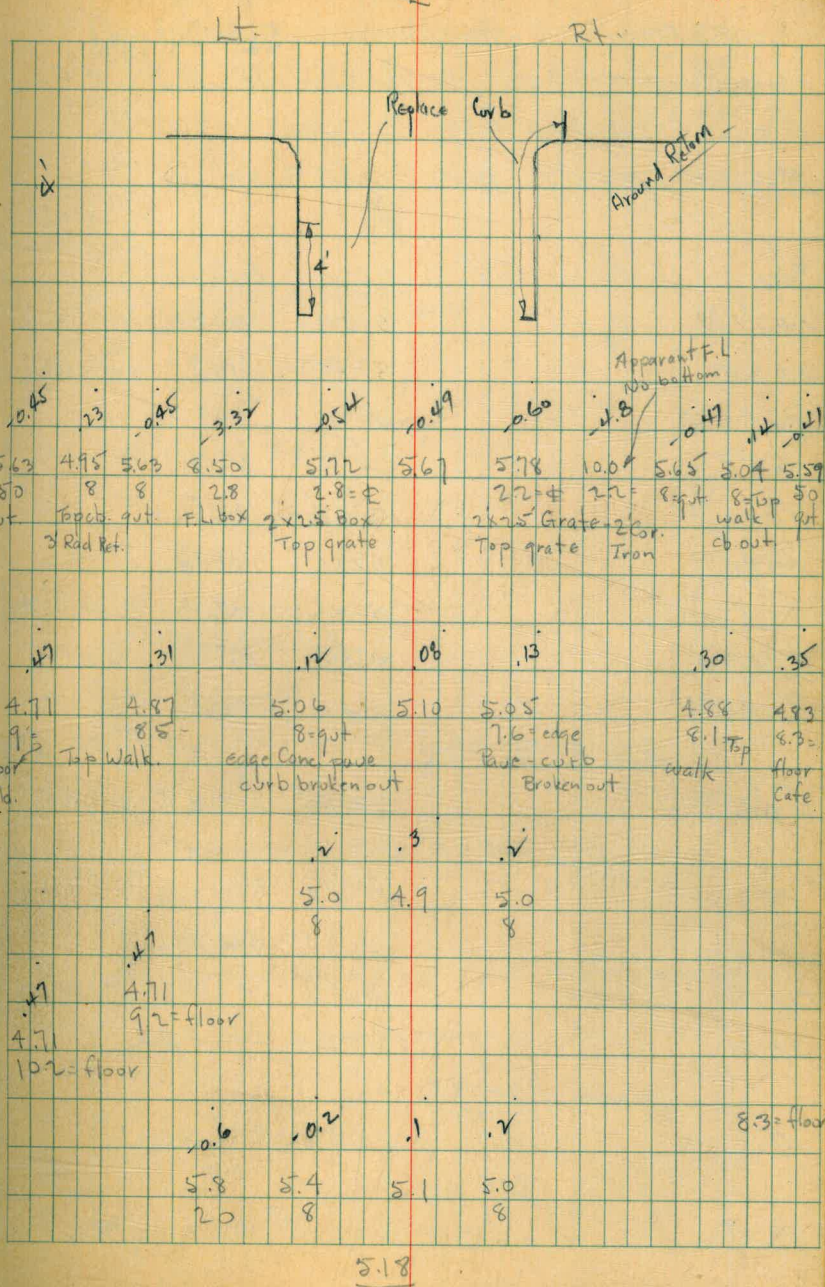 Lt. Rt.
Replace Curb
Around Return
4'
Apparant F.L.
No bottom
-0.45 .23 -0.45 -3.32 -0.54 -0.49 -0.60 -4.8 -0.47 .14 -0.41
5.63 4.95 5.63 8.50 5.72 5.67 5.78 10.0 5.65 5.04 5.59
50 8 8 2.8 2.8=℄ 2.2=℄ 2.2= 8=gut. 8=Top 50
Topcb. gut. F.L. Box 2x2.5 Box 2'x2.5' Grate-2'Cor. walk gut
3' Rad Ret. Top grate Top grate Iron cb.out.
.47 .31 .12 .08 .13 .30 .35
4.71 4.87 5.06 5.10 5.05 4.88 4.83
9= 8.5- 8=gut 7.6=edge 8.1=Top 8.3=
Top Walk. edge Conc. pave Pave-curb walk floor
curb broken out Broken out Cafe
.2 .3 .2
5.0 4.9 5.0
8 8
.47
4.71
9.2=floor
.47
4.71
10.2=floor
8.3=floor
-0.6 -0.2 .1 .2
5.8 5.4 5.1 5.0
20 8 8
5.18